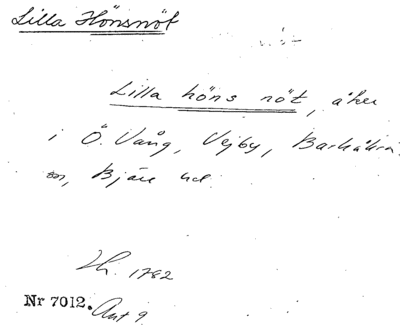 Lilla Hönsnöt
Lilla höns nöt, åker
i Ö. Vång, Vejby, Barkåkra
sn, Bjäre hd.
Lh. 1782
Nr 7012. Akt 9